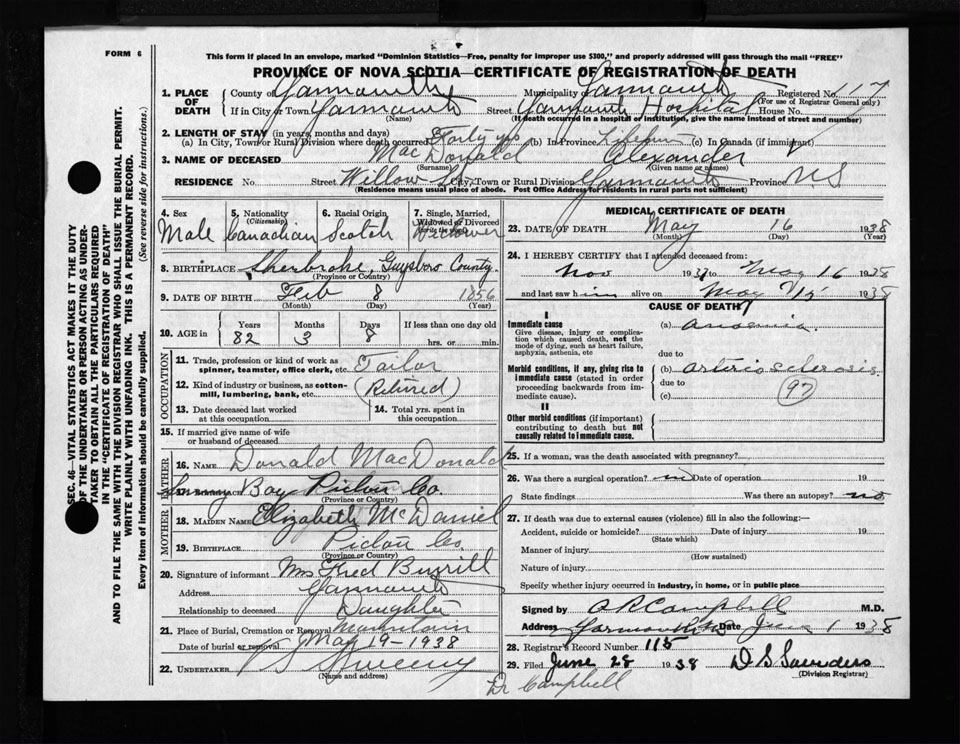 FORM 6
This form if placed in an envelope, marked "Dominion Statistics—Free, penalty for improper use $300," and properly addressed will pass through the mail "FREE"
PROVINCE OF NOVA SCOTIA—CERTIFICATE OF REGISTRATION OF DEATH
SEC. 46—VITAL STATISTICS ACT MAKES IT THE DUTY
OF THE UNDERTAKER OR PERSON ACTING AS UNDER-
TAKER TO OBTAIN ALL THE PARTICULARS REQUIRED
IN THE "CERTIFICATE OF REGISTRATION OF DEATH"
AND TO FILE THE SAME WITH THE DIVISION REGISTRAR WHO SHALL ISSUE THE BURIAL PERMIT.
WRITE PLAINLY WITH UNFADING INK. THIS IS A PERMANENT RECORD.
Every item of information should be carefully supplied. (See reverse side for instructions.)
1. PLACE OF DEATH County of Yarmouth Municipality of Yarmouth Registered No. 117
(For use of Registrar General only)
If in City or Town Yarmouth Street Yarmouth Hospital House No.
(Name) (If death occurred in a hospital or institution, give the name instead of street and number)
2. LENGTH OF STAY (in years, months and days)
(a) In City, Town or Rural Division where death occurred Forty yrs (b) In Province Lifetime (c) In Canada (if immigrant)
3. NAME OF DECEASED MacDonald Alexander
(Surname) (Given name or names)
RESIDENCE No. Street Willow St. City, Town or Rural Division Yarmouth Province NS
(Residence means usual place of abode. Post Office Address for residents in rural parts not sufficient)
4. Sex Male
5. Nationality (Citizenship) Canadian
6. Racial Origin Scotch
7. Single, Married, Widowed or Divorced Widower
8. BIRTHPLACE Sherbroke, Guysboro County
(Province or Country)
9. DATE OF BIRTH Feb 8 1856
(Month) (Day) (Year)
10. AGE in Years Months Days If less than one day old
82 3 8 hrs. or min.
OCCUPATION
11. Trade, profession or kind of work as spinner, teamster, office clerk, etc. Tailor
12. Kind of industry or business, as cotton-mill, lumbering, bank, etc. (Retired)
13. Date deceased last worked at this occupation
14. Total yrs. spent in this occupation
15. If married give name of wife or husband of deceased
FATHER
16. NAME Donald MacDonald
Bay Pictou Co.
(Province or Country)
MOTHER
18. MAIDEN NAME Elizabeth McDaniel
19. BIRTHPLACE Pictou Co
(Province or Country)
20. Signature of informant Mrs Fred Burrill
Address Yarmouth
Relationship to deceased Daughter
21. Place of Burial, Cremation or Removal Mountain
Date of burial or removal May 19-1938
22. UNDERTAKER Sweeny
(Name and address)
MEDICAL CERTIFICATE OF DEATH
23. DATE OF DEATH May 16 1938
(Month) (Day) (Year)
24. I HEREBY CERTIFY that I attended deceased from:
Nov 1937 to May 16 1938
and last saw him alive on May 15 1938
CAUSE OF DEATH
I
Immediate cause (a) anaemia
Give disease, injury or complication which caused death, not the mode of dying, such as heart failure, asphyxia, asthenia, etc
due to
Morbid conditions, if any, giving rise to immediate cause (stated in order proceeding backwards from immediate cause).
(b) arteriosclerosis
due to (97)
(c)
II
Other morbid conditions (if important) contributing to death but not causally related to immediate cause.
25. If a woman, was the death associated with pregnancy?
26. Was there a surgical operation? no Date of operation 19
State findings Was there an autopsy? no
27. If death was due to external causes (violence) fill in also the following:—
Accident, suicide or homicide? Date of injury 19
(State which)
Manner of injury
(How sustained)
Nature of injury
Specify whether injury occurred in industry, in home, or in public place
Signed by A R Campbell M.D.
Address Yarmouth NS Date June 1 1938
28. Registrar's Record Number 115
29. Filed June 28 1938 D. S. Saunders
(Division Registrar)
Dr Campbell